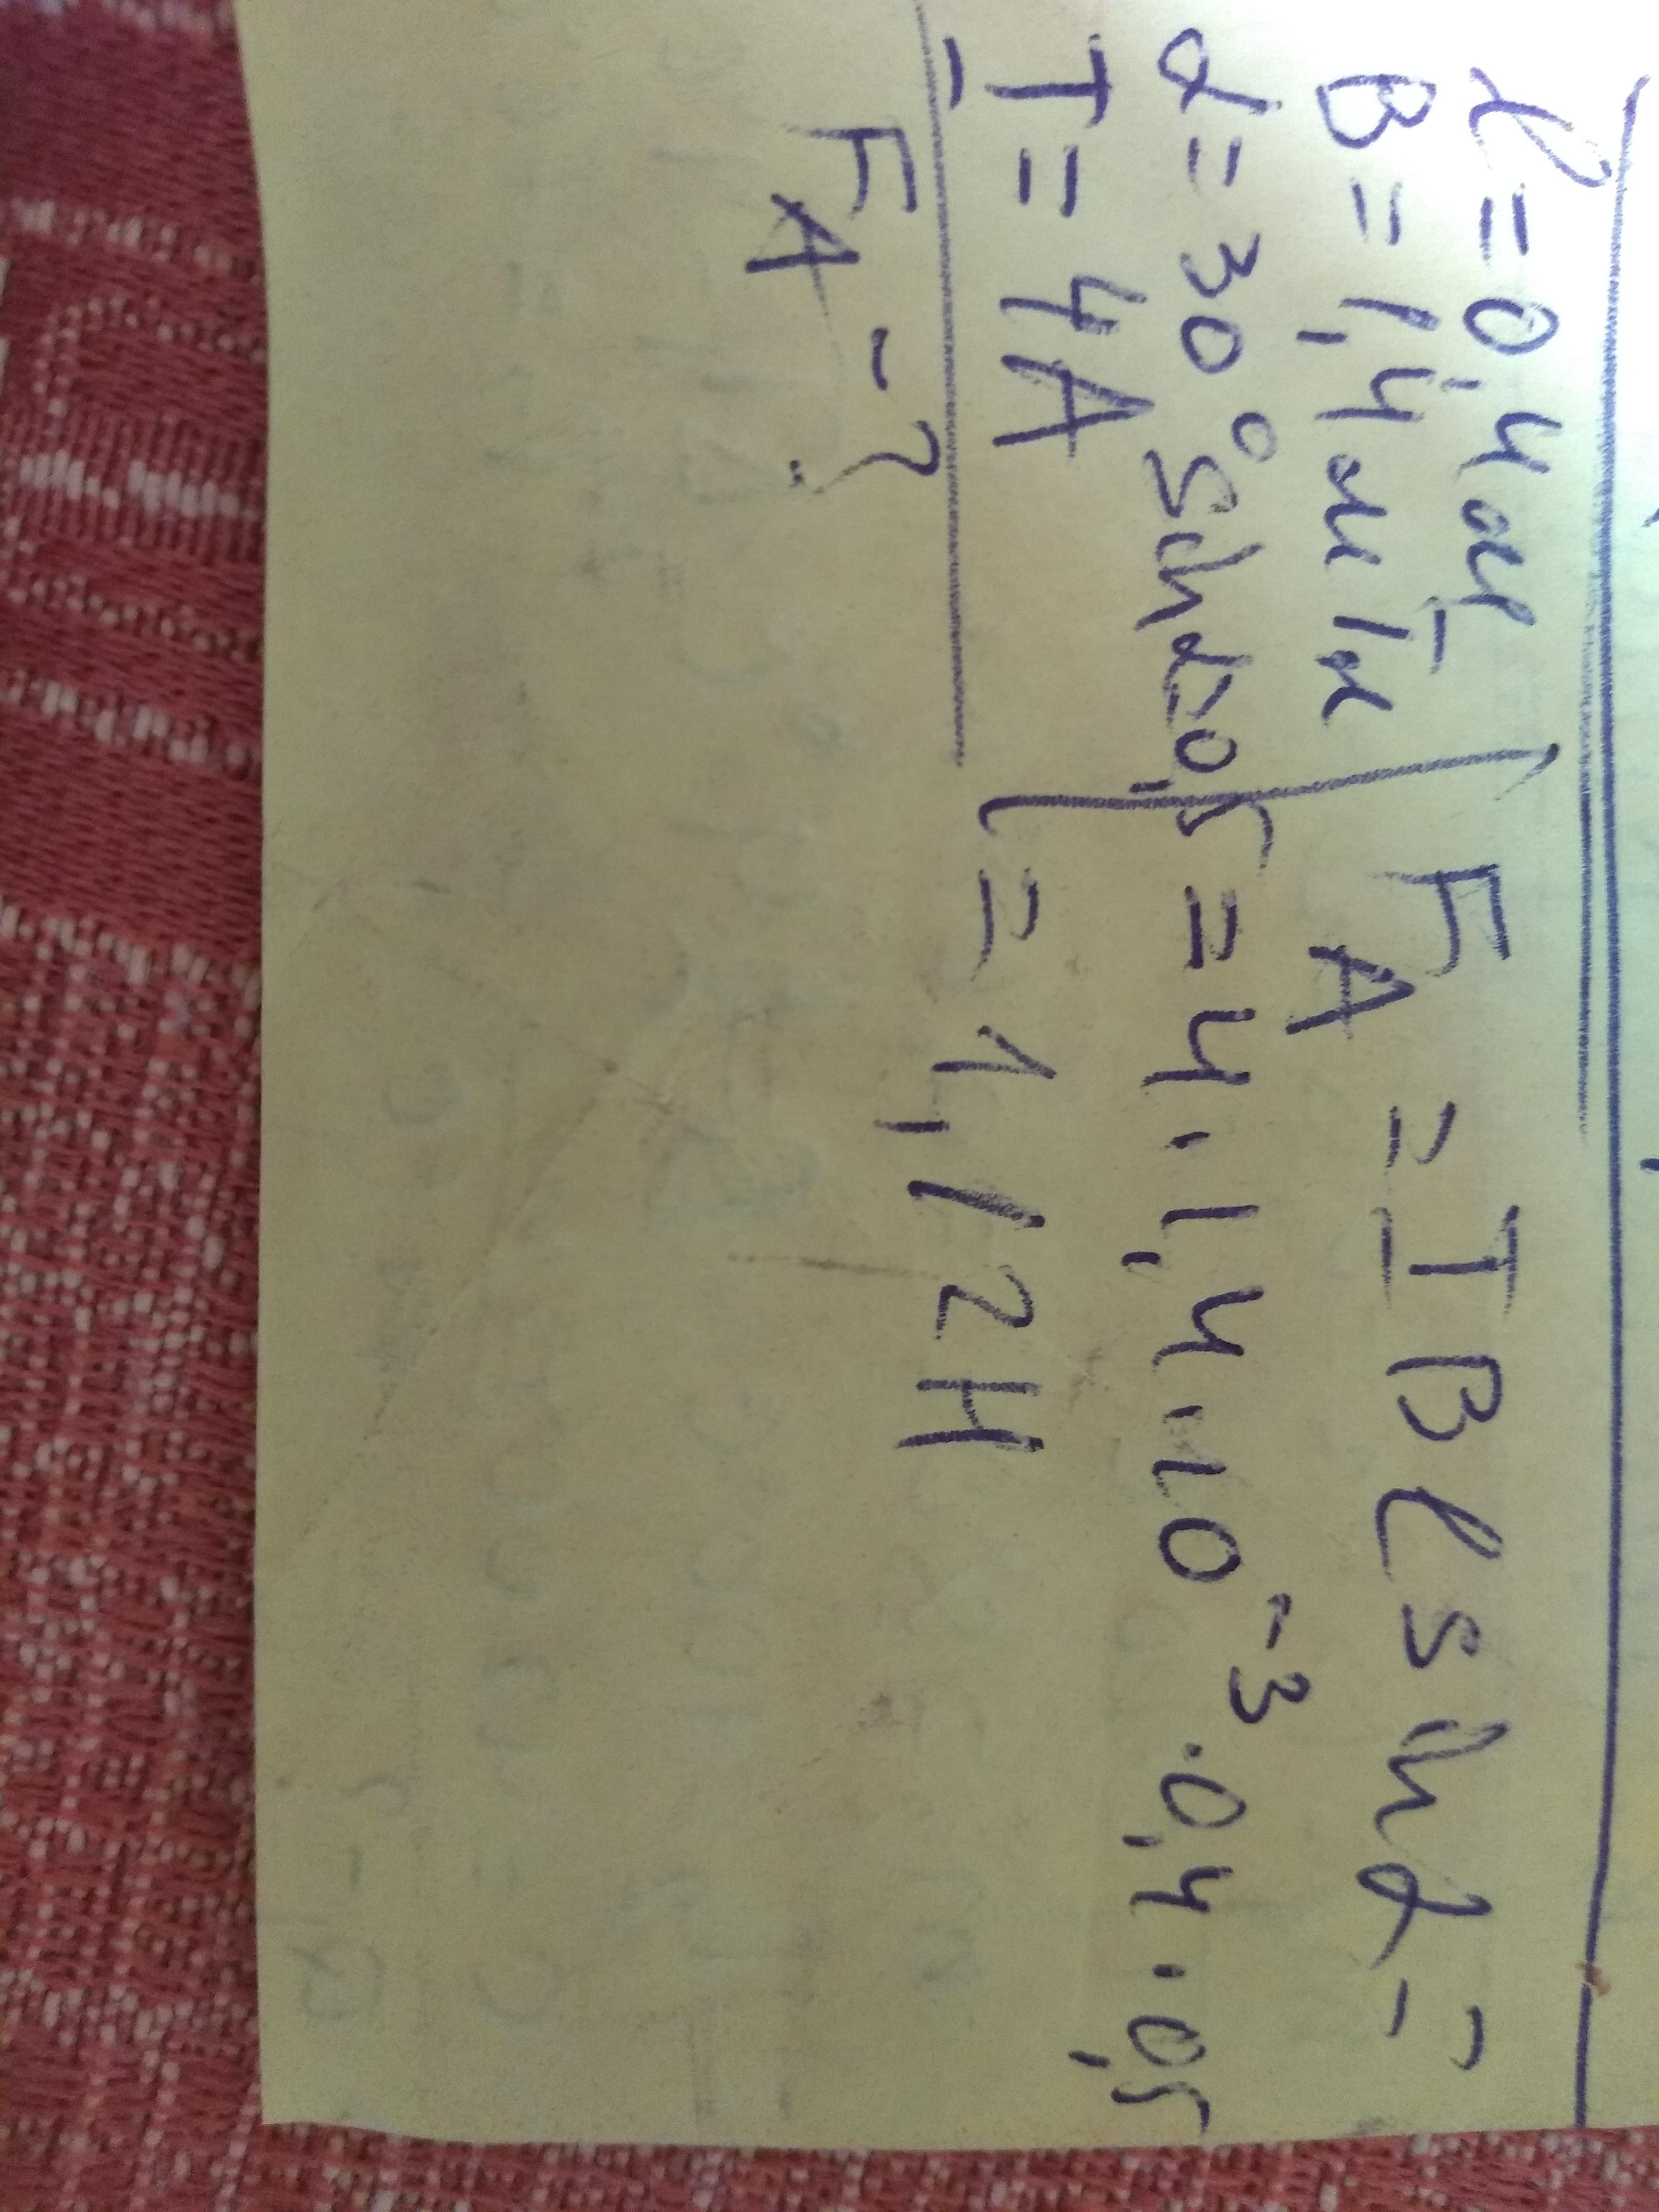 l = 0,4 м
B = 1,4 мТл
α = 30° sin α = 0,5
I = 4A
F_A - ?
F_A = I B l sin α =
= 4 · 1,4 · 10⁻³ · 0,4 · 0,5
= 1,12 H